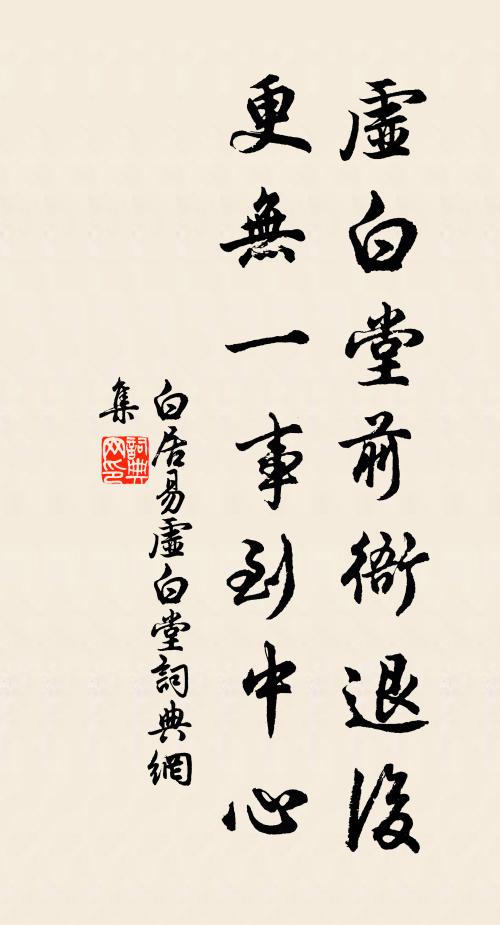 虛白堂前衙退後
更無一事到中心
白居易虛白堂詞典網
集
詞典
网印